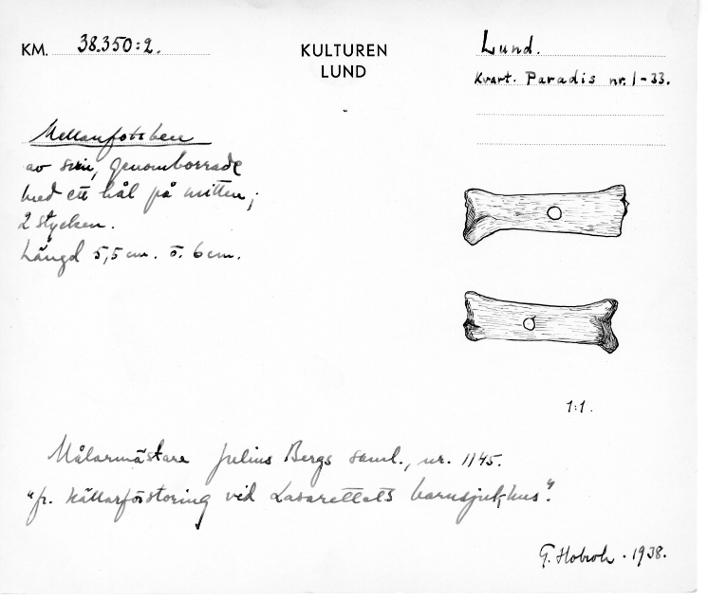 KM. 38.350:2.
KULTUREN
LUND
Lund.
Kvart. Paradis nr. 1-33.
Mellanfotsben
av svin, genomborrade
med ett hål på mitten;
2 stycken.
Längd 5,5 cm. o. 6 cm.
1:1.
Målarmästare Julius Bergs saml., nr. 1145.
"fr. källarförstoring vid Lasarettets barnsjukhus".
1938.